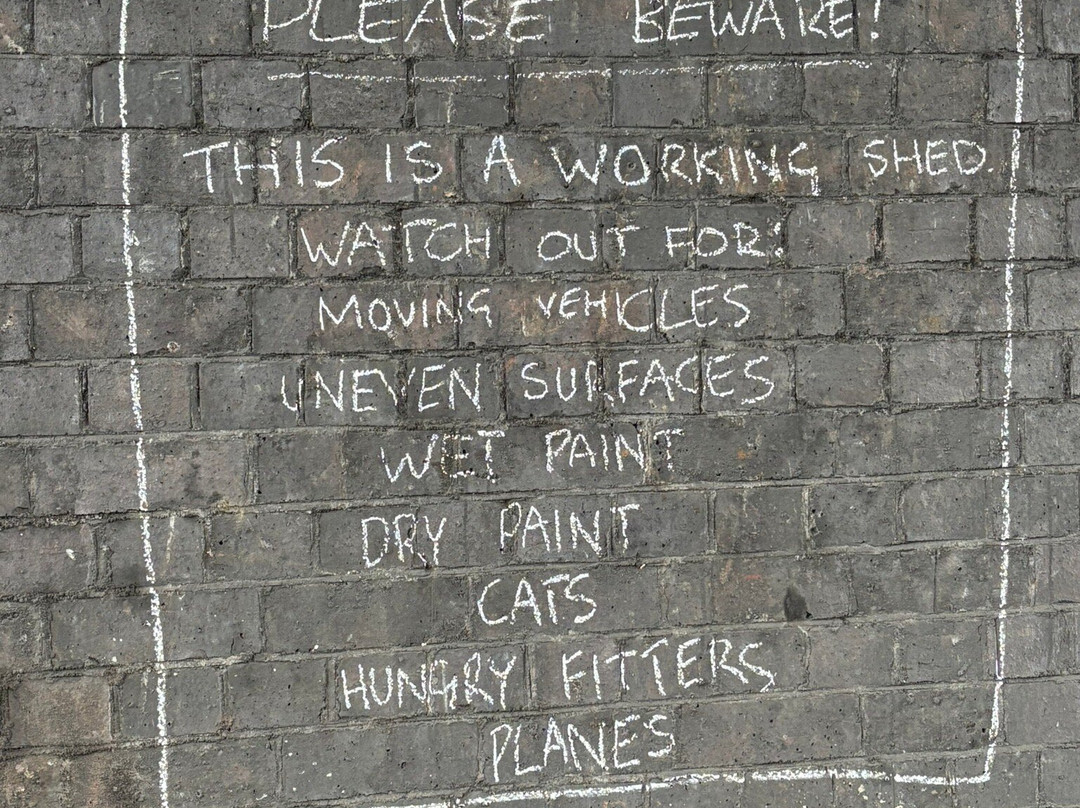 PLEASE BEWARE!
THIS IS A WORKING SHED.
WATCH OUT FOR:
MOVING VEHICLES
UNEVEN SURFACES
WET PAINT
DRY PAINT
CATS
HUNGRY FITTERS
PLANES